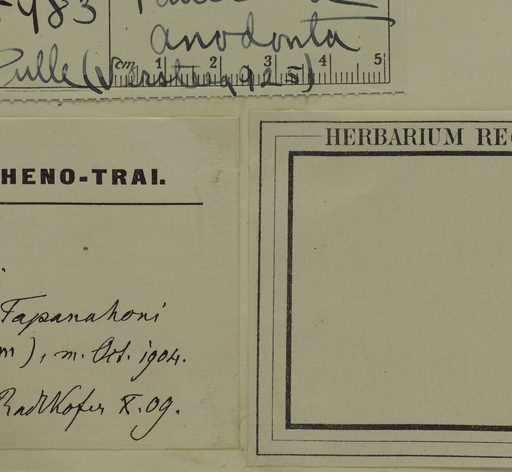 983
anodonta
Pulle
cm 1 2 3 4 5
HENO-TRAI.
HERBARIUM RE
Tapanahoni
m), m. Oct. 1904.
Radlkofer X. 09.